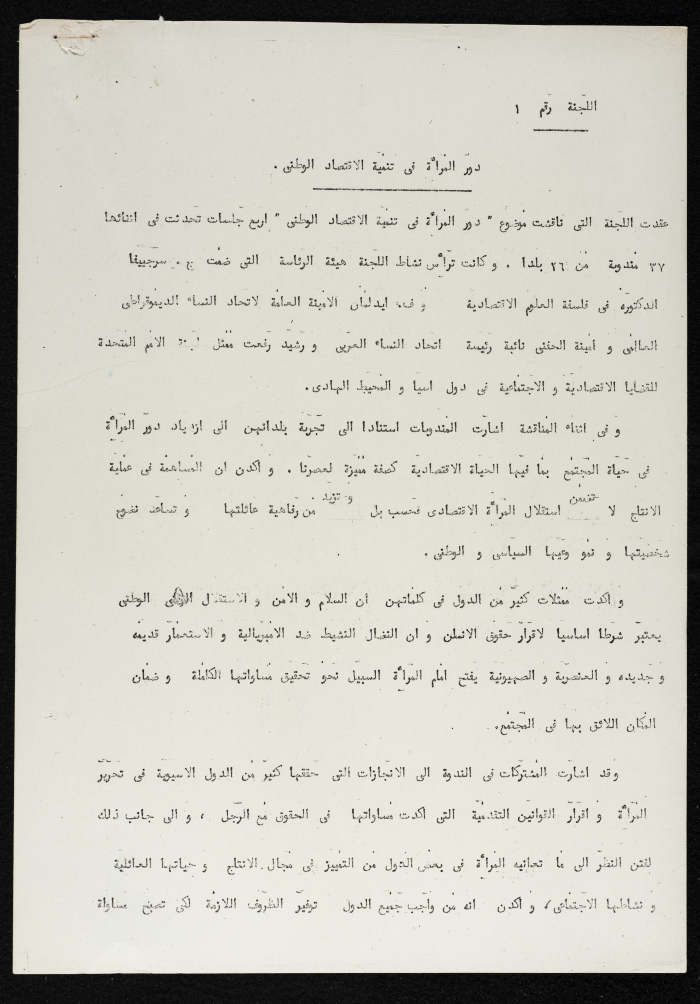 اللجنة رقم ١
دور المرأة فى تنمية الاقتصاد الوطنى .
عقدت اللجنة التى ناقشت موضوع " دور المرأة فى تنمية الاقتصاد الوطنى " اربع جلسات تحدثت فى اثنائها
٣٧ مندوبة من ٢٦ بلدا . و كانت ترأس نشاط اللجنة هيئة الرئاسة التى ضمت ج . سرجييفا
الدكتورة فى فلسفة العلوم الاقتصادية و ف. ايدلمان الامينة العامة لاتحاد النساء الديموقراطى
العالمى و امينة الحفنى نائبة رئيسة اتحاد النساء العربى و رشيد رفعت ممثل الامم المتحدة
للقضايا الاقتصادية و الاجتماعية فى دول اسيا و المحيط الهادى .
و فى اثناء المناقشة اشارت المندوبات استنادا الى تجربة بلدانهن الى ازدياد دور المرأة
فى حياة المجتمع بما فيها الحياة الاقتصادية كصفة مميزة لعصرنا . و اكدن ان المساهمة فى عملية
الانتاج لا تتضمن استقلال المرأة الاقتصادى فحسب بل و تزيد من رفاهية عائلتها و تساعد نضوج
شخصيتها و نمو وعيها السياسى و الوطنى .
و اكدت ممثلات كثير من الدول فى كلماتهن ان السلام و الامن و الاستقلال الوطنى
يعتبر شرطا اساسيا لاقرار حقوق الانسان و ان النضال النشيط ضد الامبريالية و الاستعمار قديمه
و جديده و العنصرية و الصهيونية يفتح امام المرأة السبيل نحو تحقيق مساواتها الكاملة و ضمان
المكان اللائق بها فى المجتمع.
و قد اشارت المشتركات فى الندوة الى الانجازات التى حققها كثير من الدول الاسيوية فى تحرير
المرأة و اقرار القوانين التقدمية التى اكدت مساواتها فى الحقوق مع الرجل ، و الى جانب ذلك
لفتن النظر الى ما تعانيه المرأة فى بعض الدول من التمييز فى مجال الانتاج و حياتها العائلية
و نشاطها الاجتماعى ، و اكدن انه من واجب جميع الدول توفير الظروف اللازمة لكى تصبح مساواة